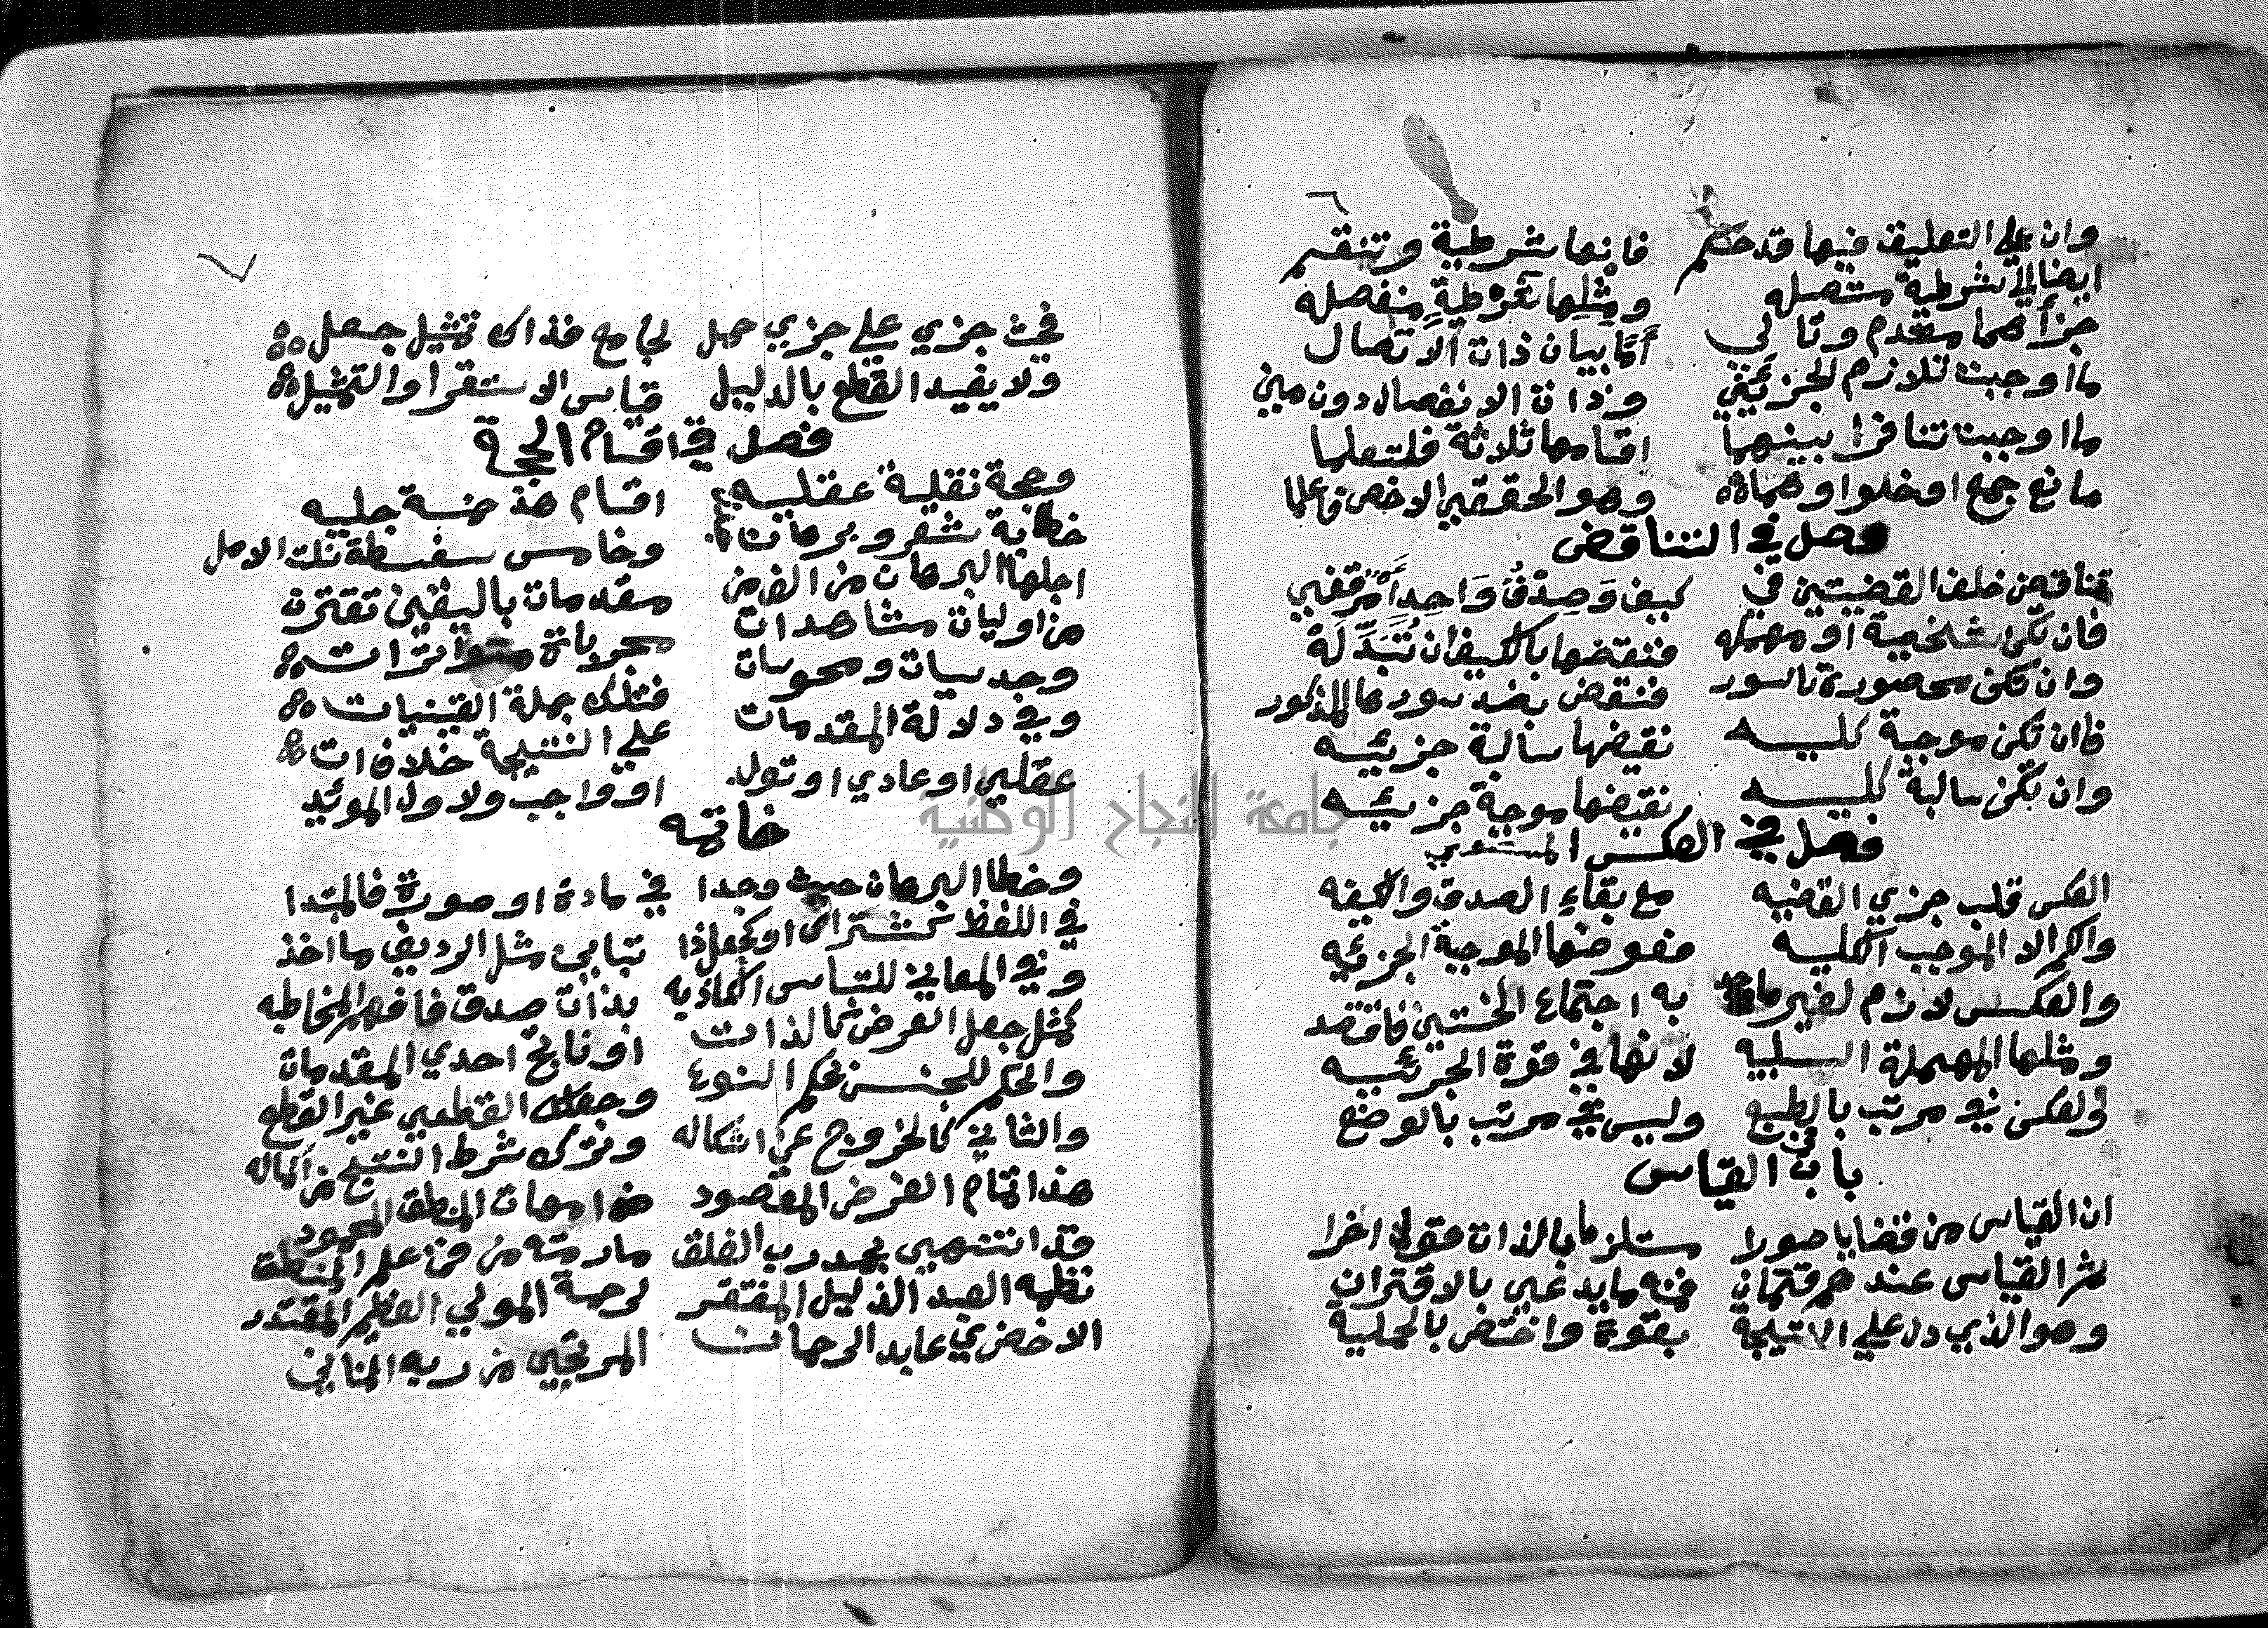 ٦
وان علي التعليق فيها قد حكم فانها شرطية وتنقسم
ايضا الي شرطية متصله ومثلها شرطية منفصله
جزأهما مقدم وتالي أمّا بيان ذات الاتصال
ما اوجبت تلازم الجزئين وذات الانفصال دون مين
ما اوجبت تنافرا بينهما اقسامها ثلاثة فلتعلما
مانع جمع او خلو اوهما وهو الحقيقي الاخص فاعلما
فصل في التناقض
تناقض خلف القضيتين في كيف وَصِدْقُ وَاحِدٍ أَمْرٌ قفي
فان تكن شخصية او مهمله فنقضها بالكيف ان تُبَدِّلَهْ
وان تكن محصورة بالسور فنقض بضد سورها المذكور
فان تكن موجبة كليه نقيضها سالبة جزئيه
وان تكن سالبة كليه نقيضها موجبة جزئيه
فصل في العكس المستوي
العكس قلب جزي القضيه مع بقاء الصدق والكيفه
والكم الا الموجب الكليه فعوضها الموجبة الجزئيه
والعكس لازم لغير ما وجد به اجتماع الخستين فاقتصد
ومثلها المهملة السلبيه لانها في قوة الجزئيه
والعكس في مرتب بالطبع وليس في مرتب بالوضع
باب في القياس
ان القياس من قضايا صورا مستلزما بالذات قولا اخرا
ثم القياس عندهم قسمان فمنه ما يدعي بالاقتران
وهو الذي دل علي النتيجة بقوة واختص بالحملية
٧
فحيث جزي علي جزي حمل لجامع فذاك تمثيل جعل
ولا يفيد القطع بالدليل قياس الاستقرا والتمثيل
فصل في اقسام الحجة
وحجة نقلية عقليه اقسام هذ خمسة جليه
خطابة شعر وبرهان وخامس سفسطة نلت الامل
اجلها البرهان من الف من مقدمات باليقين تقترن
من اوليات مشاهدات مجربات متواترات
وحدسيات ومحسوسات فتلك جملة اليقينيات
وفي دلالة المقدمات علي النتيجة خلاف ات
عقلي او عادي او تولد او واجب ولاول المويد
خاتمه
وخطا البرهان حيث وجدا في مادة او صورة فالمبتدا
في اللفظ كاشتراك او كجعل ذا تباين مثل الرديف ماخذ
وفي المعاني للتباس الكاذبه بذات صدق فافهم المخاطبه
كمثل جعل العرض كالذات او ناتج احدي المقدمات
والحكم للجنس بحكم النوع وجعل القطعي غير القطع
والثاني كالخروج عن اشكاله وترك شرط النتج من اكماله
هذا تمام الغرض المقصود من امهات المنطق المحمود
قد انتهي بحمد رب الفلق ما رمته من فن علم المنطق
نظمه العبد الذليل المفتقر لرحمة المولي العظيم المقتدر
الاخضري عابد الرحمان المرتجي من ربه المنان
جامعة النجاح الوطنية